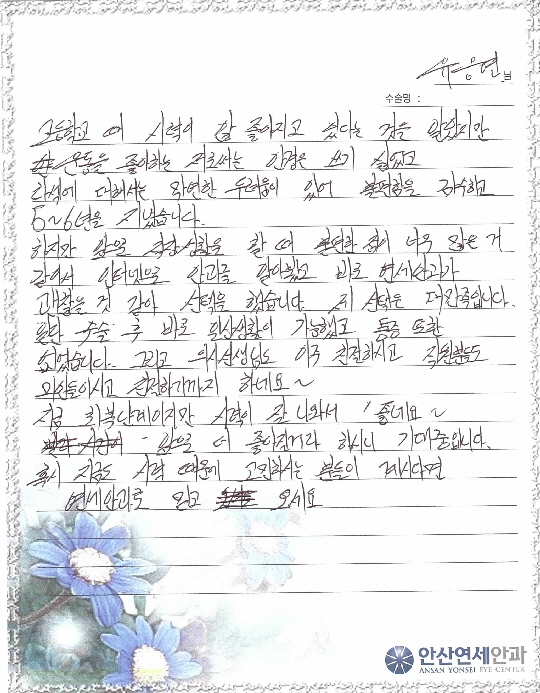 유응연님
수술명 :
고등학교 때 시력이 안 좋아지고 있다는 것을 알았지만
운동을 좋아하는 저로서는 안경은 쓰기 싫었고
라식에 대해서는 막연한 두려움이 있어 불편함을 감수하고
5~6년을 지냈습니다.
하지만 앞으로 직장생활을 할 때 불편한 점이 너무 많은 거
같아서 인터넷으로 안과를 알아봤고 바로 연세안과가
괜찮을 것 같아 선택을 했습니다. 제 선택은 대만족입니다.
일단 수술 후 바로 일상생활이 가능했고 통증 또한
없었습니다. 그리고 의사선생님도 아주 친절하시고 직원분들도
미인들이시고 친절하기까지 하네요~
지금 회복단계이지만 시력이 잘 나와서 좋네요~
앞으로 더 좋아질거라 하시니 기대중입니다.
혹시 지금도 시력 때문에 고민하시는 분들이 계시다면
연세안과로 믿고 오세요
안산연세안과
ANSAN YONSEI EYE CENTER